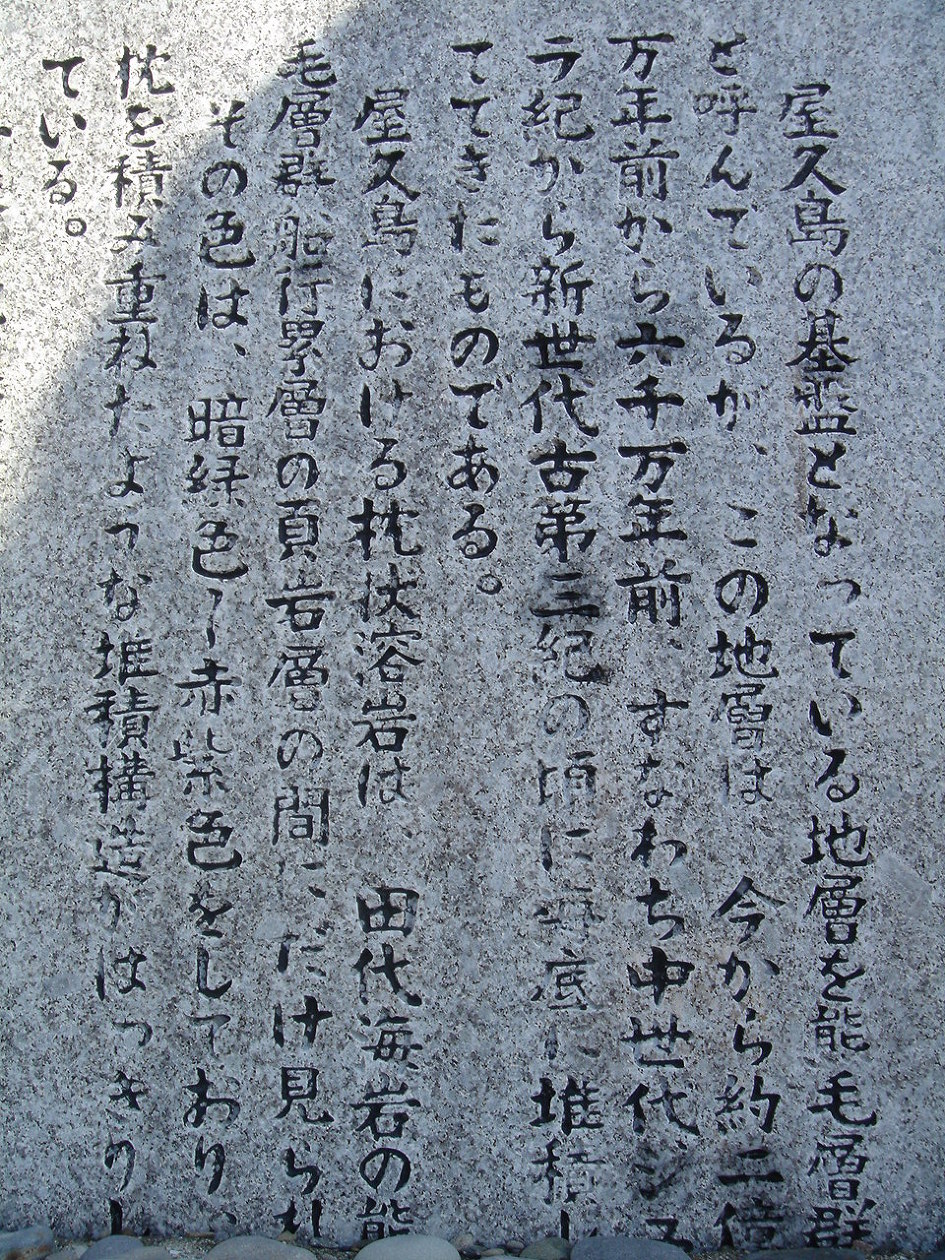 屋久島の基盤となっている地層を能毛層群
と呼んでいるが、この地層は 今から約二億
万年前から六千万年前、すなわち中世代ジュ
ラ紀から新世代古第三紀の頃に海底に堆積し
てできたものである。
屋久島における枕状溶岩は、田代海岩の能
毛層群船行累層の頁岩層の間にだけ見られ
その色は、暗緑色〜赤紫色をしており、
枕を積み重ねたような堆積構造がはっきりし
ている。